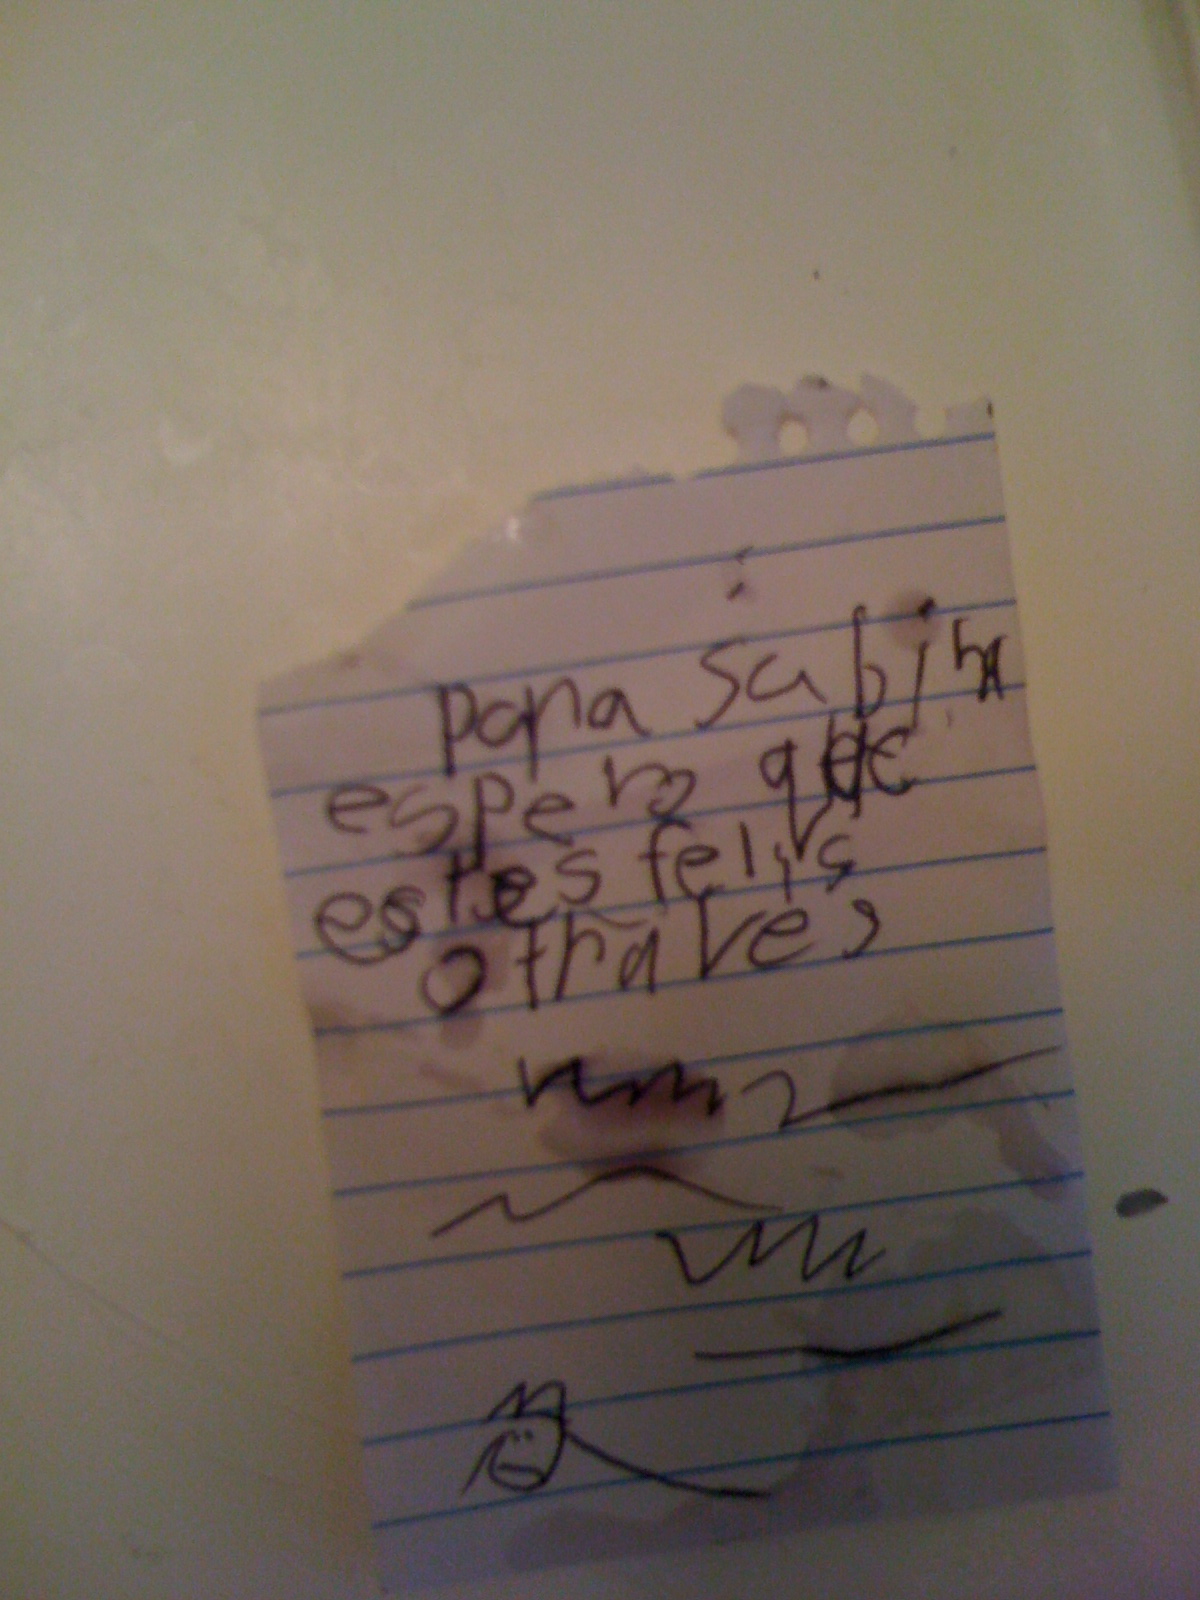 para Sabina
espero que
estes felis
otra ves